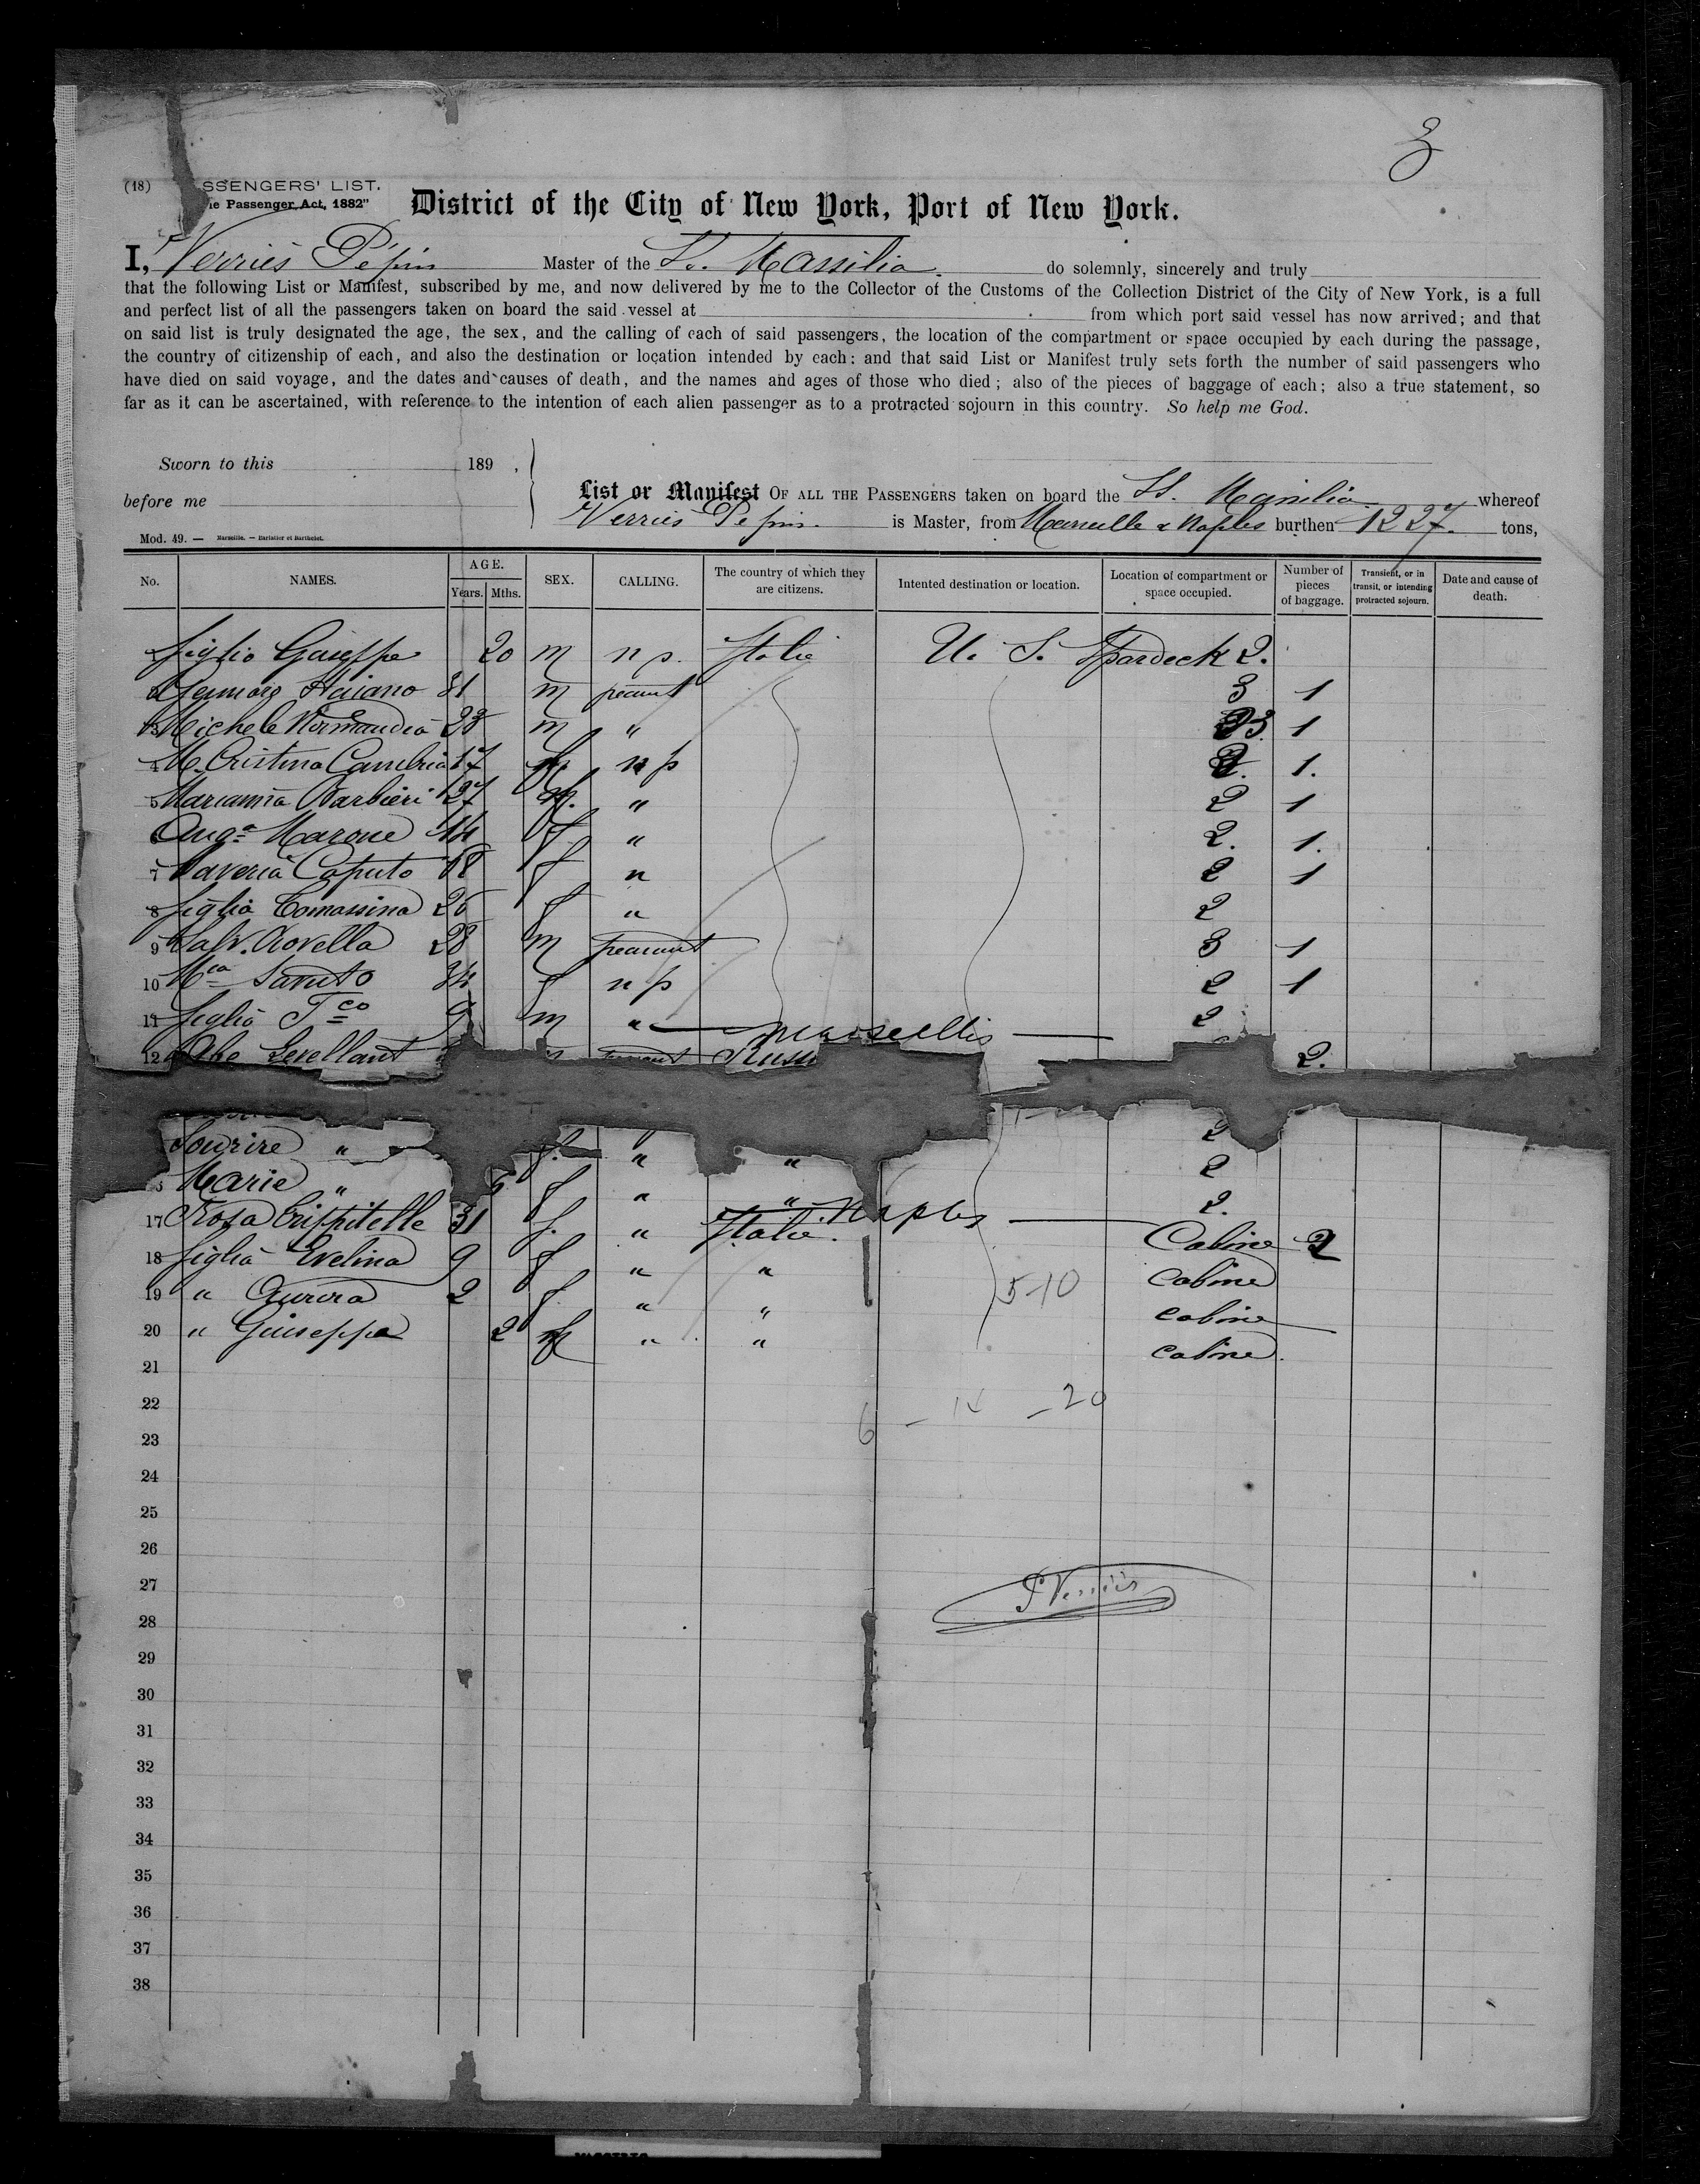 3
(18) SSENGERS' LIST.
ie Passenger Act, 1882"
District of the City of New York, Port of New York.
I, Verriès Pépin Master of the SS. Massilia. do solemnly, sincerely and truly
that the following List or Manifest, subscribed by me, and now delivered by me to the Collector of the Customs of the Collection District of the City of New York, is a full
and perfect list of all the passengers taken on board the said vessel at from which port said vessel has now arrived; and that
on said list is truly designated the age, the sex, and the calling of each of said passengers, the location of the compartment or space occupied by each during the passage,
the country of citizenship of each, and also the destination or location intended by each: and that said List or Manifest truly sets forth the number of said passengers who
have died on said voyage, and the dates and causes of death, and the names and ages of those who died; also of the pieces of baggage of each; also a true statement, so
far as it can be ascertained, with reference to the intention of each alien passenger as to a protracted sojourn in this country. So help me God.
Sworn to this 189 ,
before me
List or Manifest OF ALL THE PASSENGERS taken on board the SS. Massilia whereof
Verriès Pépin. is Master, from Marseille & Naples burthen 1227. tons,
Mod. 49. — Marseille. — Barlatier et Barthelet.
No. NAMES. AGE. Years. Mths. SEX. CALLING. The country of which they are citizens. Intented destination or location. Location of compartment or space occupied. Number of pieces of baggage. Transient, or in transit, or intending protracted sojourn. Date and cause of death.
figlio Giuseppe 20 m n p. Italie U. S. Spardeck 2.
Gennaro 31 m peasant 3 1
3 Michele 23 m " 3. 1
4 M. Cristina 17 f n p 2. 1.
5 Marianna Barbieri 27 f. " 2 1
Ang.a Marone 14 f. " 2. 1.
7 Saveria Caputo 18 f " 2 1
8 figlia Tomassina 26 f " 2
9 Salv. Rovella 28 m peasant 3 1
10 M.ca Sanuto 34 f n p 2 1
11 figlio F.co 9 m " 2
Marseilles
12 Abe Russ 2.
Sourire " f. " " 2
Marie " 6 f " " 2
Naples
17 Rosa 31 f. " Italie. 2. Cabine 2
18 figlia Evelina 9 f " " cabine
19 " Aurora 2 f " " cabine
20 " Giuseppe 2 m " " cabine.
5-10
21
22
6 - 14 - 20
23
24
25
26
27
P Verriès
28
29
30
31
32
33
34
35
36
37
38